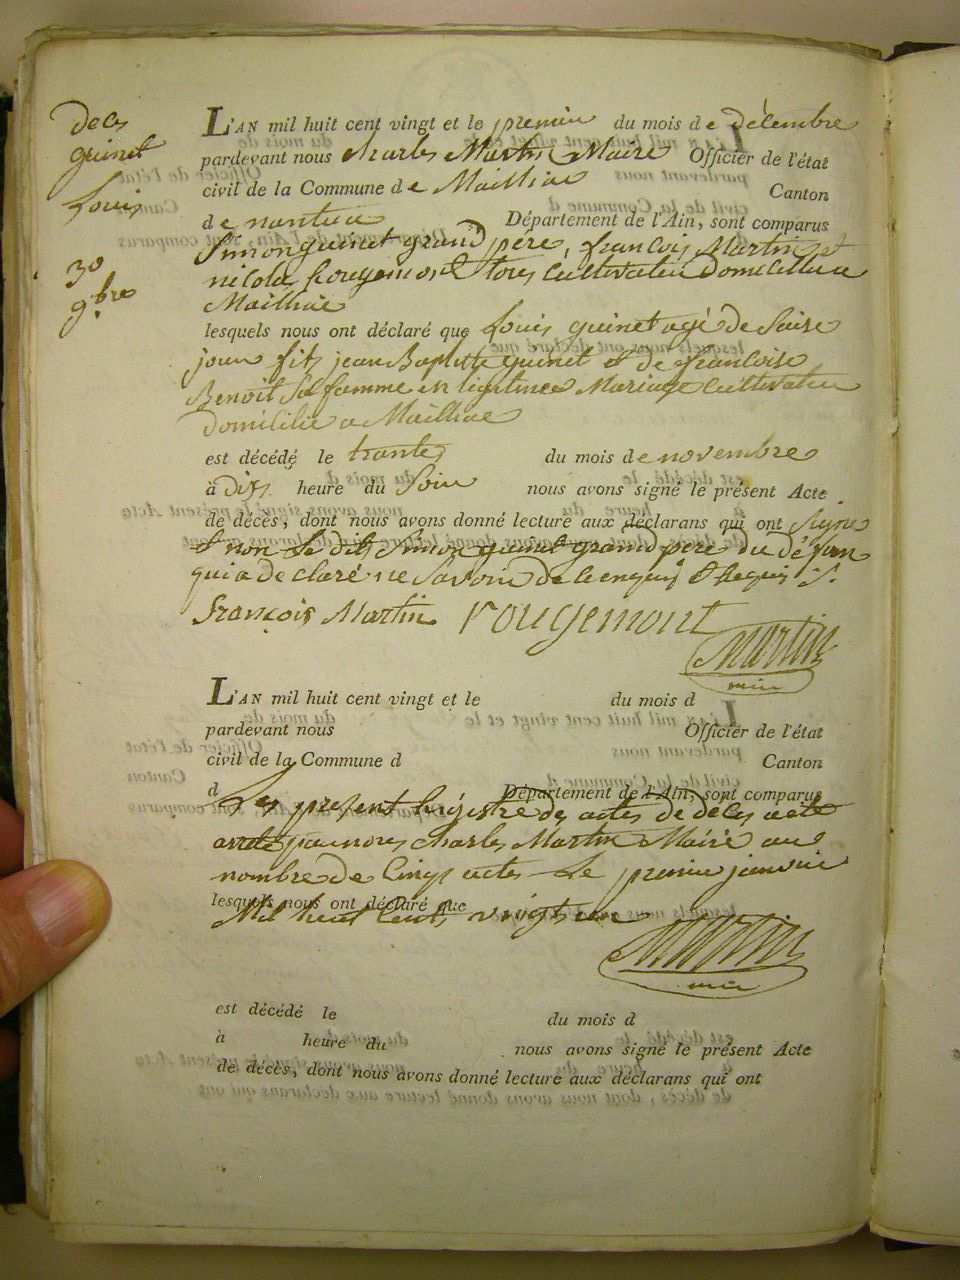 deces
guinet
Louis
30
9bre
L'AN mil huit cent vingt et le premier du mois de décembre
pardevant nous charles Martin Maire Officier de l'état
civil de la Commune de Mailliac Canton
de nantua Département de l'Ain, sont comparus
Simon guinet grand père, francois Martin et
nicolas Rougemont tous cultivateur Domicillier a
Mailliac
lesquels nous ont déclaré que Louis guinet agé de Saise
jour fils jean Baptiste guinet & de francoise
Benoit Sa famme en legitimee Mariage cultivateur
domicilié a Mailliac
est décédé le trante du mois de novembre
à dix heure du Soir nous avons signé le présent Acte
de décès, dont nous avons donné lecture aux déclarans qui ont Signé
& non le dit Simon guinet grand père du défun
qui a declaré ne Savoir de ce enquis & Requis
françois Martin rougemont
Martin
maire
L'AN mil huit cent vingt et le du mois d
pardevant nous Officier de l'état
civil de la Commune d Canton
d Département de l'Ain, sont comparus
Le present Régistre des actes de déces acté
par nous charles Martin Maire au
nombre de Cinq actes Le premier janvier
lesquels nous ont déclaré que
Mil huit Cent vingt un
Martin
maire
est décédé le du mois d
à heure du nous avons signé le présent Acte
de décès, dont nous avons donné lecture aux déclarans qui ont